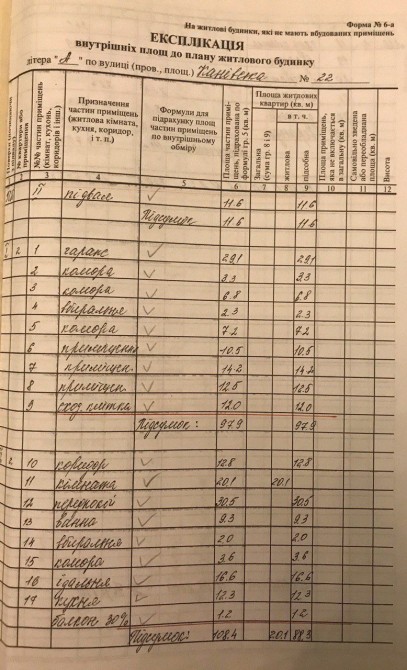 Форма № 6-а
На житлові будинки, які не мають вбудованих приміщень
ЕКСПЛІКАЦІЯ
внутрішніх площ до плану житлового будинку
літера " А " по вулиці (пров., площ.) Канівська № 22
№№ частин приміщень (кімнат, кухонь, коридорів і інш.)
Призначення частин приміщень (житлова кімната, кухня, коридор, і т. п.)
Формули для підрахунку площ частин приміщень по внутрішньому обміру)
Площа частин приміщень, підрахована по формулі гр. 5 (кв. м)
Площа житлових квартир (кв. м)
Загальна (сума гр. 8 і 9)
в т. ч.
житлова
підсобна
Площа приміщень, яка не включається в загальну (кв. м)
Самовільно зведена або переобладнана площа (кв. м)
Висота
3 4 5 6 7 8 9 10 11 12
II підвал ✓ 11.6 11.6
Підсумок 11.6 11.6
2 1 гараж ✓ 29.1 29.1
2 комора ✓ 3.3 3.3
3 комора ✓ 6.8 6.8
4 вбиральня ✓ 2.3 2.3
5 комора ✓ 7.2 7.2
6 приміщення ✓ 10.5 10.5
7 приміщен. ✓ 14.2 14.2
8 приміщен. ✓ 12.5 12.5
9 сход. клітка ✓ 12.0 12.0
Підсумок: 97.9 97.9
2 10 коридор ✓ 12.8 12.8
11 кімната ✓ 20.1 20.1
12 передпокій ✓ 30.5 30.5
13 ванна ✓ 9.3 9.3
14 вбиральня ✓ 2.0 2.0
15 комора ✓ 3.6 3.6
16 їдальня ✓ 16.6 16.6
17 кухня ✓ 12.3 12.3
балкон 30% 1.2 1.2
Підсумок: 108.4 20.1 88.3